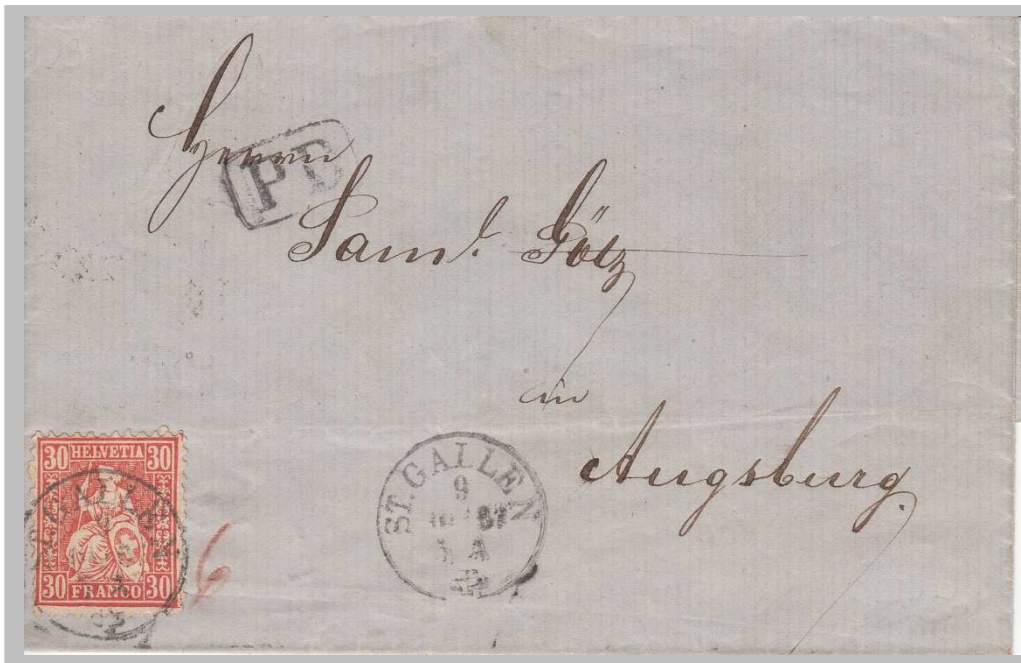 Herrn
PD
Saml. Götz
in
Augsburg.
30 HELVETIA 30
30 FRANCO 30
ST. GALLEN
9
67
A
6